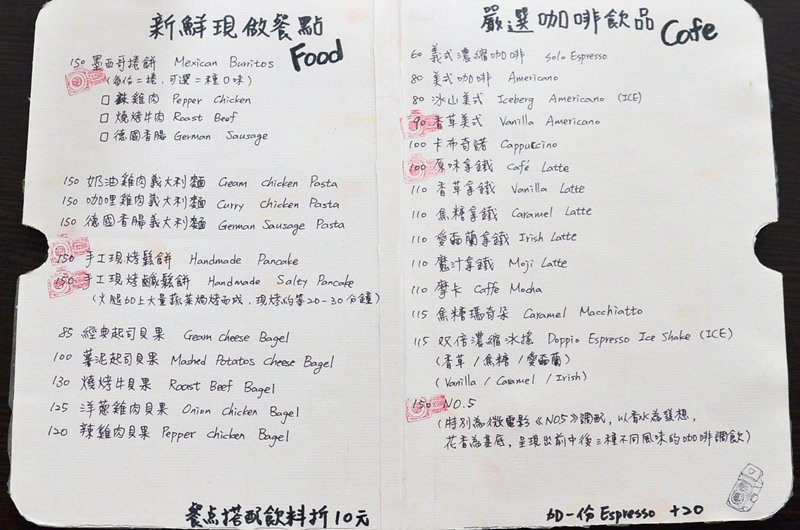 新鮮現做餐點
Food
150 墨西哥捲餅 Mexican Burritos
(每份二捲,可選二種口味)
□ 辣雞肉 Pepper Chicken
□ 燒烤牛肉 Roast Beef
□ 德國香腸 German Sausage
150 奶油雞肉義大利麵 Cream chicken Pasta
150 咖哩雞肉義大利麵 Curry chicken Pasta
150 德國香腸義大利麵 German Sausage Pasta
150 手工現烤鬆餅 Handmade Pancake
150 手工現烤鹹鬆餅 Handmade Salty Pancake
(火腿加上大量蔬菜焗烤而成,現烤約等20-30分鐘)
85 經典起司貝果 Cream cheese Bagel
100 薯泥起司貝果 Mashed Potatos Cheese Bagel
130 燒烤牛貝果 Roast Beef Bagel
125 洋蔥雞肉貝果 Onion chicken Bagel
120 辣雞肉貝果 Pepper chicken Bagel
餐点搭配飲料折10元
嚴選咖啡飲品
Cafe
60 義式濃縮咖啡 Solo Espresso
80 美式咖啡 Americano
80 冰山美式 Iceberg Americano (ICE)
90 香草美式 Vanilla Americano
100 卡布奇諾 Cappuccino
100 原味拿鐵 Café Latte
110 香草拿鐵 Vanilla Latte
110 焦糖拿鐵 Caramel Latte
110 愛爾蘭拿鐵 Irish Latte
110 魔汁拿鐵 Moji Latte
110 摩卡 Caffé Mocha
115 焦糖瑪奇朵 Caramel Macchiatto
115 双倍濃縮冰搖 Doppio Espresso Ice Shake (ICE)
(香草/焦糖/愛爾蘭)
(Vanilla / Caramel / Irish)
150 NO.5
(特別為微電影《NO5》調配,以香水為發想,
花香為基底,呈現出前中後三種不同風味的咖啡調飲)
加一份 Espresso +20